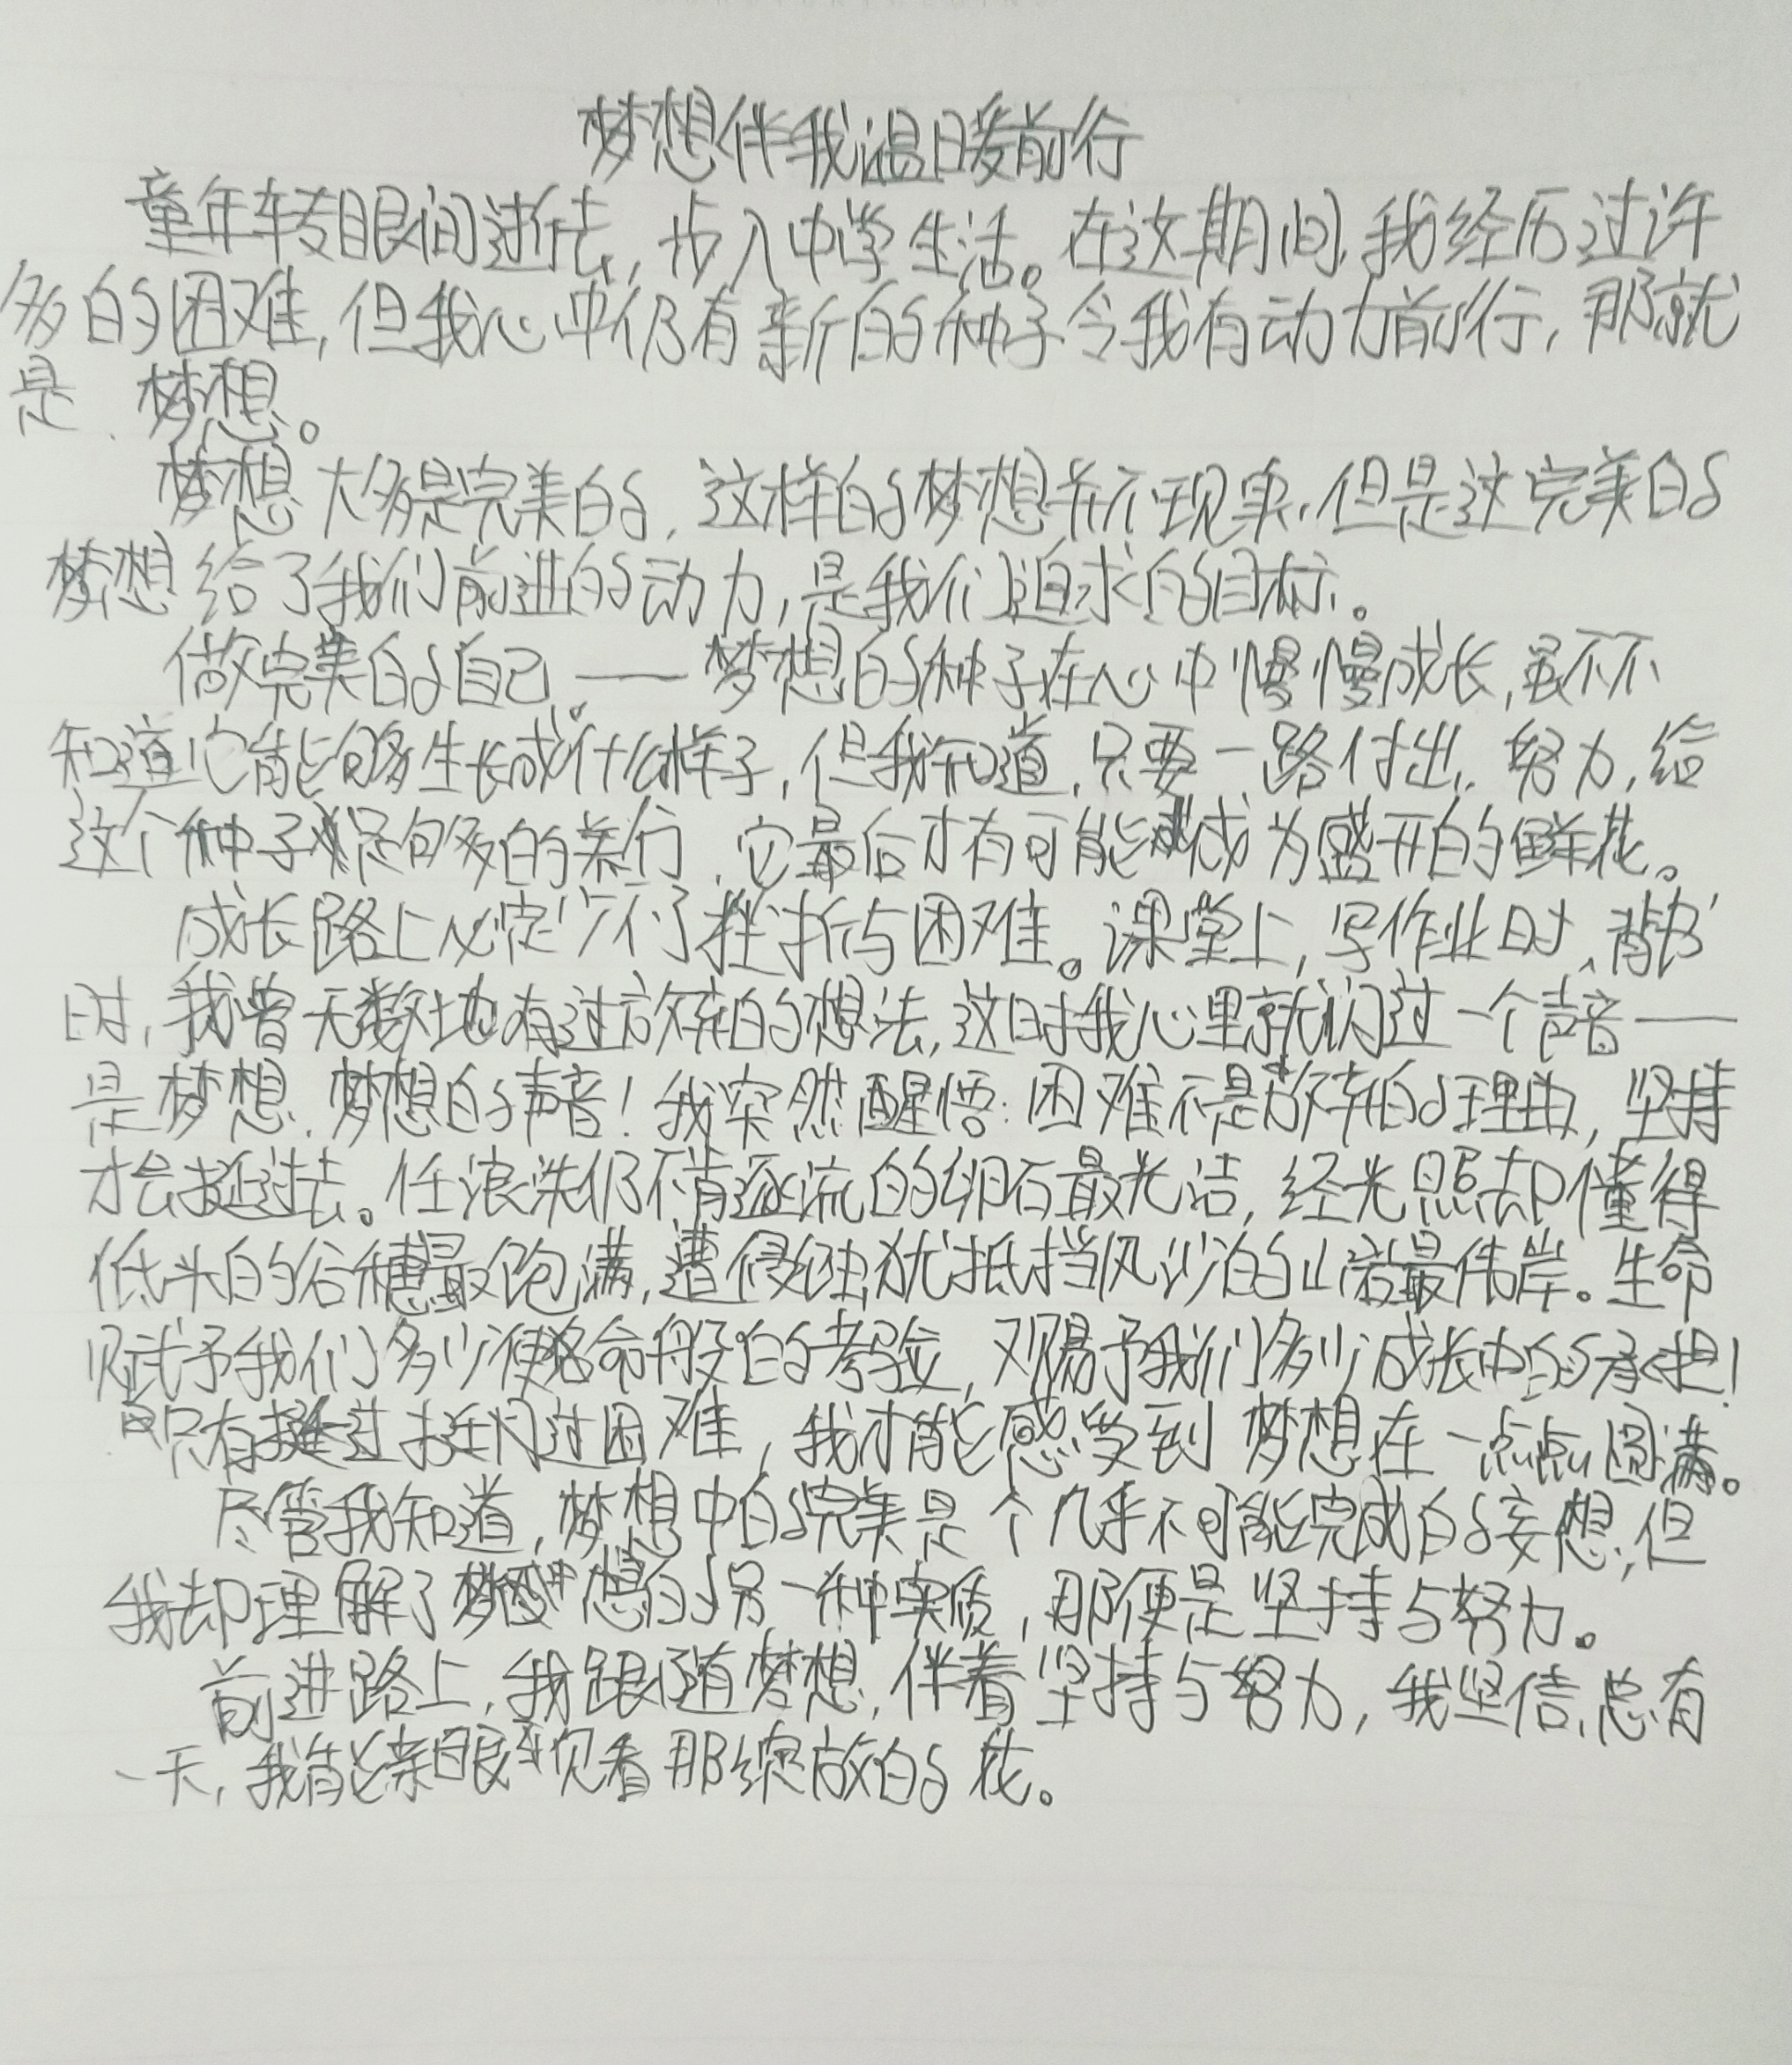 梦想伴我温暖前行
童年转眼间逝去，步入中学生活。在这期间，我经历过许
多的困难，但我心中仍有新的种子令我有动力前行，那就
是、梦想。
梦想大多是完美的，这样的梦想并不现实，但是这完美的
梦想给了我们前进的动力，是我们追求的目标。
做完美的自己。——梦想的种子在心中慢慢成长，虽不不
知道它能够生长成什么样子，但我知道，只要一路付出、努力，给
这个种子足够的养分，它最后才有可能成为盛开的鲜花。
成长路上必定少不了挫折与困难。课堂上，写作业时、背书
时，我曾无数地有过放弃的想法，这时我心里就闪过一个声音——
是梦想、梦想的声音！我突然醒悟：困难不是放弃的理由，坚持
才会挺过去。任浪洗仍不肯逐流的卵石最光洁，经光照却懂得
低头的谷穗最饱满，遭侵蚀犹抵挡风沙的山岩最伟岸。生命
赋予我们多少使命般的考验，又赐予我们多少成长中的承担！
只有挺过困难，我才能感受到梦想在一点点圆满。
尽管我知道，梦想中的完美是个几乎不可能完成的妄想，但
我却理解了梦想的另一种实质，那便是坚持与努力。
前进路上，我跟随梦想，伴着坚持与努力，我坚信，总有
一天，我能亲眼观看那绽放的花。